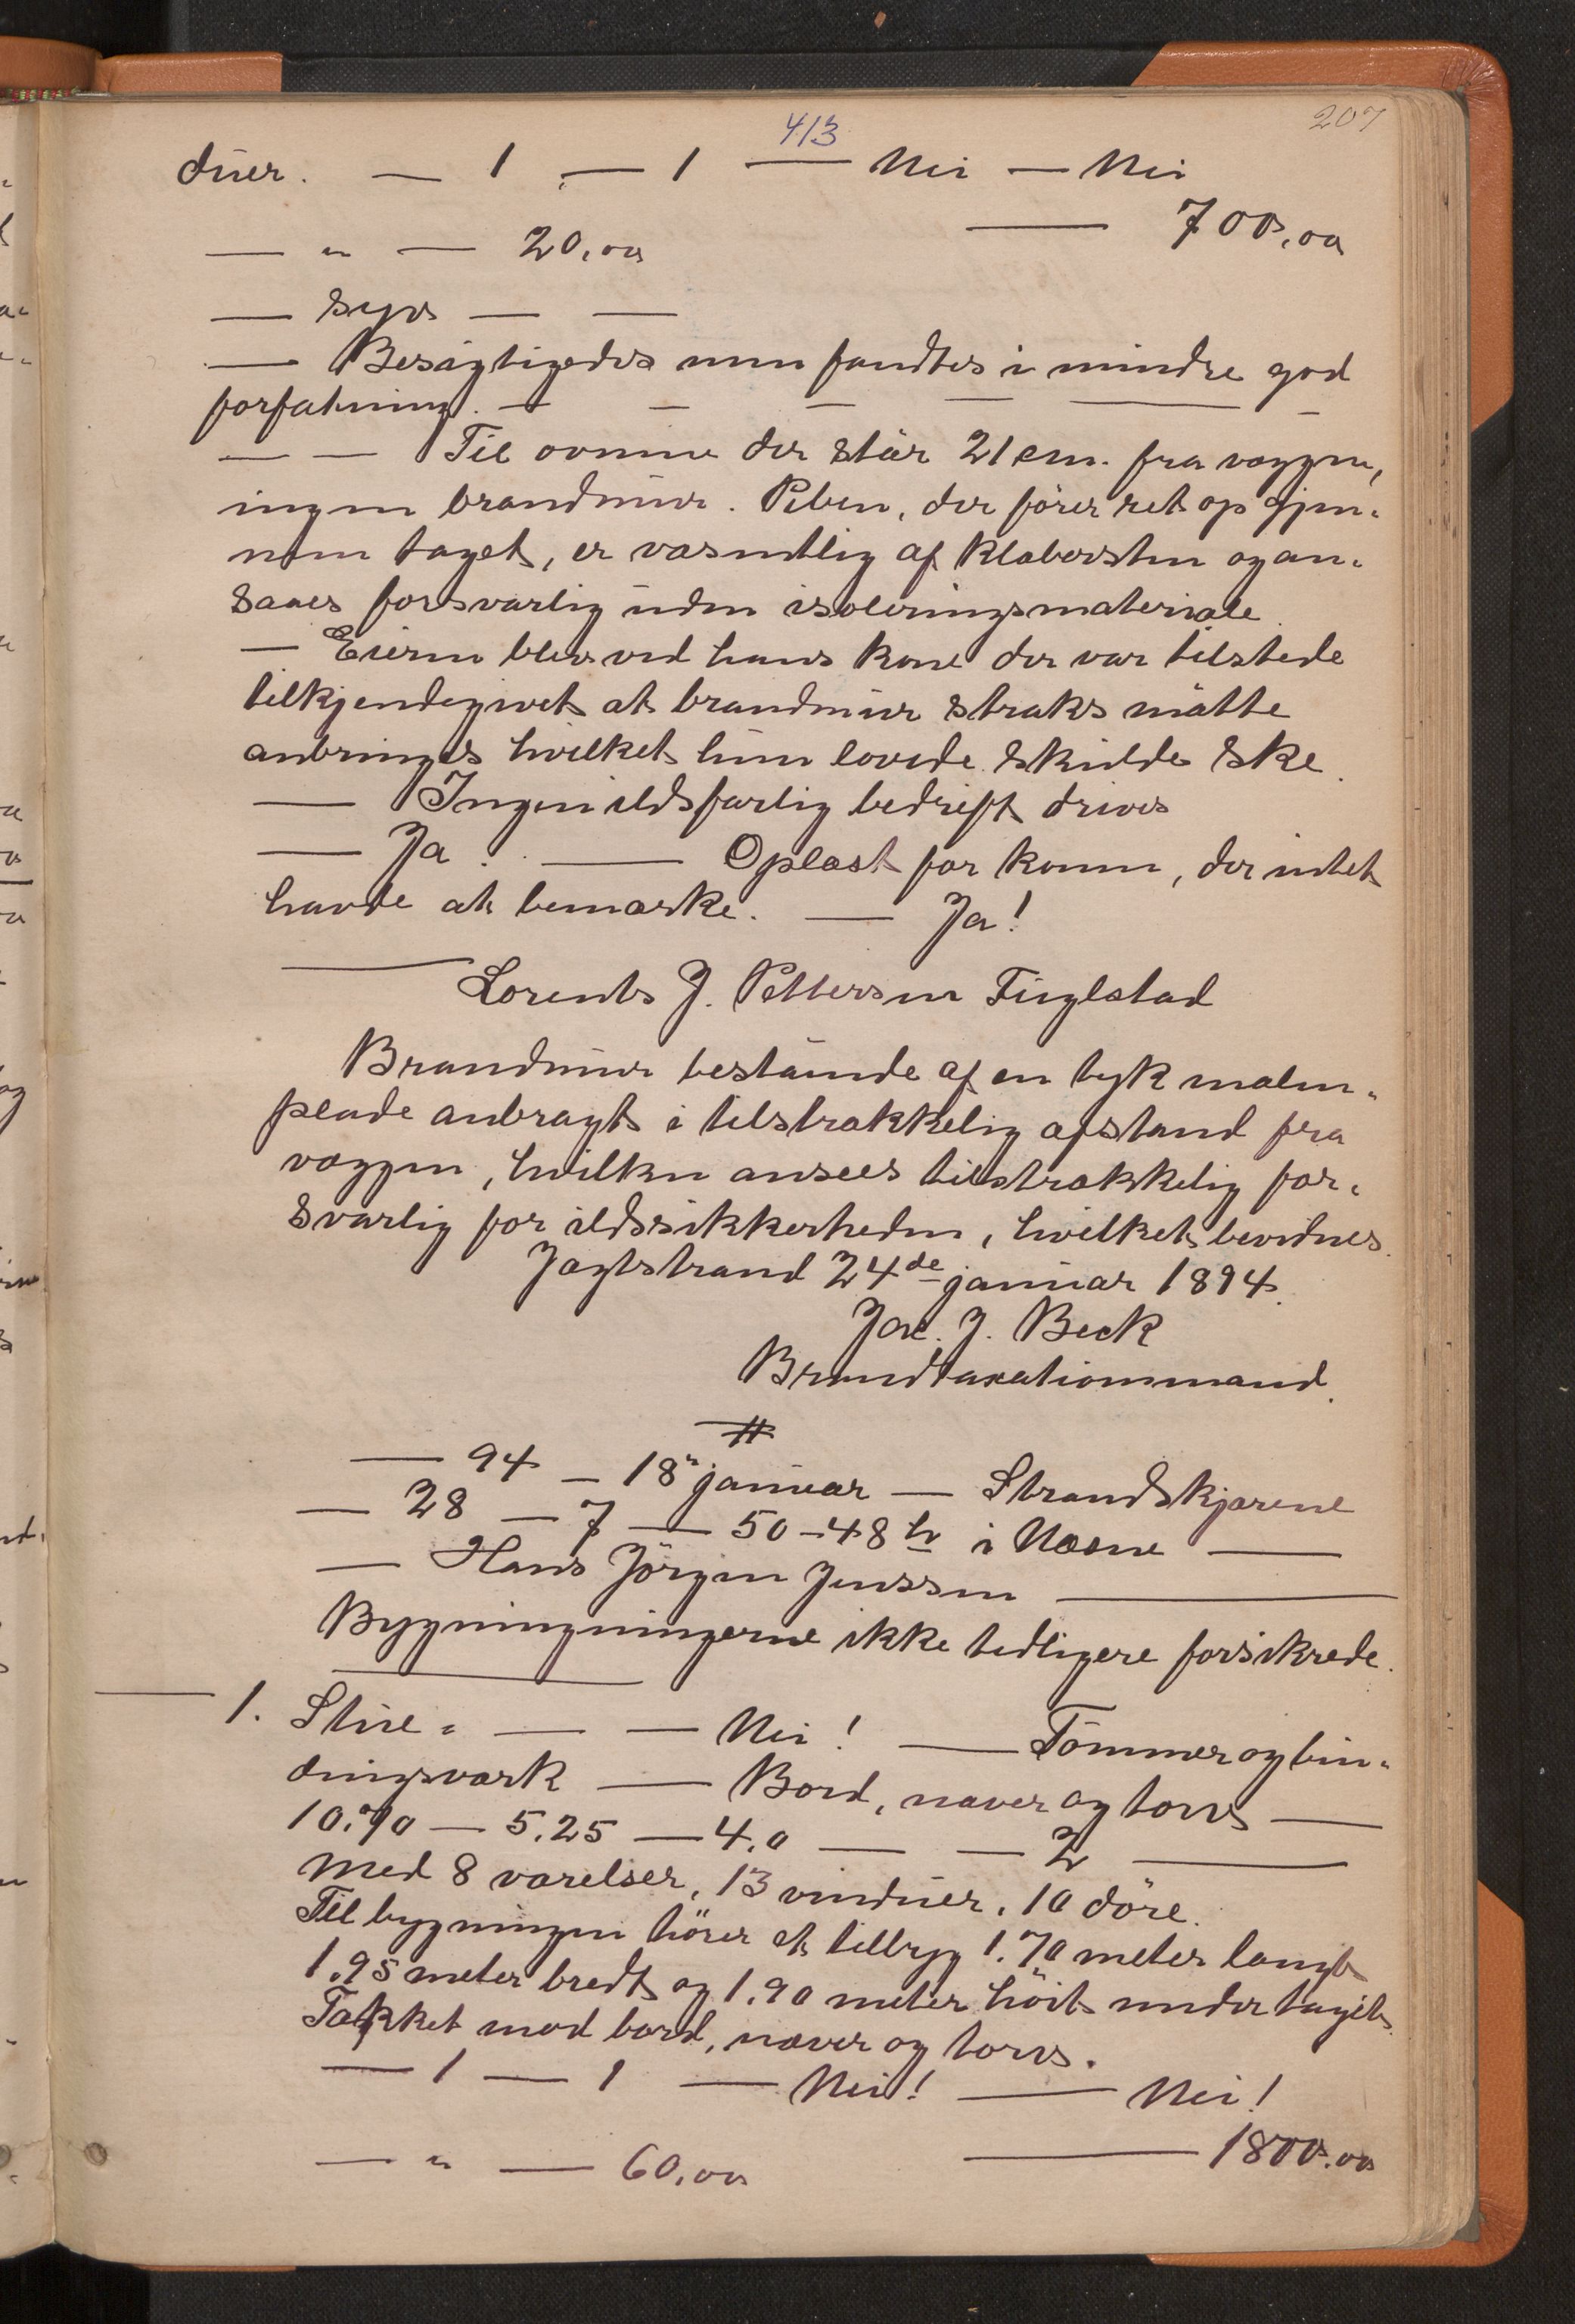 413
207
düer. — 1 — 1 — Nei — Nei
— 700,00
— " — 20,00
— Syd — —
— Besigtigedes men fandtes i mindre god
forfatning. — — — — — —
— — Til ovnene der står 21 cm. fra væggen,
ingen brandmür. Piben, der förer ret op gjen-
nem taget, er væsentlig af Klebersten og an-
saaes forsvarlig üden isoleringsmateriale.
— Eieren blev ved hans kone der var tilstede
tilkjendegivet at brandmür straks måtte
anbringes hvilket hün lovede skülde ske.
— Ingen ildsfarlig bedrift drives
— Ja. — Oplæst for konen, der intet
havde at bemærke. — Ja!
— Lorents J. Pettersen Füglstad
Brandmür bestäende af en tyk malm-
plade anbragt i tilstrækkelig afstand fra
væggen, hvilken ansees tilstrækkelig for-
svarlig for ildssikkerheden, hvilket bevidnes.
Jagtstrand 24de janüar 1894.
Jac. J. Beck
Brandtaxationsmand.
— 94 — 18" janüar — Strandskjærene
— 28 — 7 — 50-48 hr i Næsne —
— Hans Jörgen Jenssen —
Bygningningerne ikke tidligere forsikrede.
— 1. Stüe - — — Nei! — Tömmer og bin-
dingsværk — Bord, næver og torv —
10.70 — 5.25 — 4.0 — — 2 —
med 8 værelser, 13 vindüer, 10 döre.
Til bygningen hörer et tilbyg 1.70 meter langt
1.95 meter bredt og 1.90 meter höit under taget.
Tækket med bord, næver og torv.
— 1 — 1 — Nei! — Nei!
— " — 60,00 — 1800.00